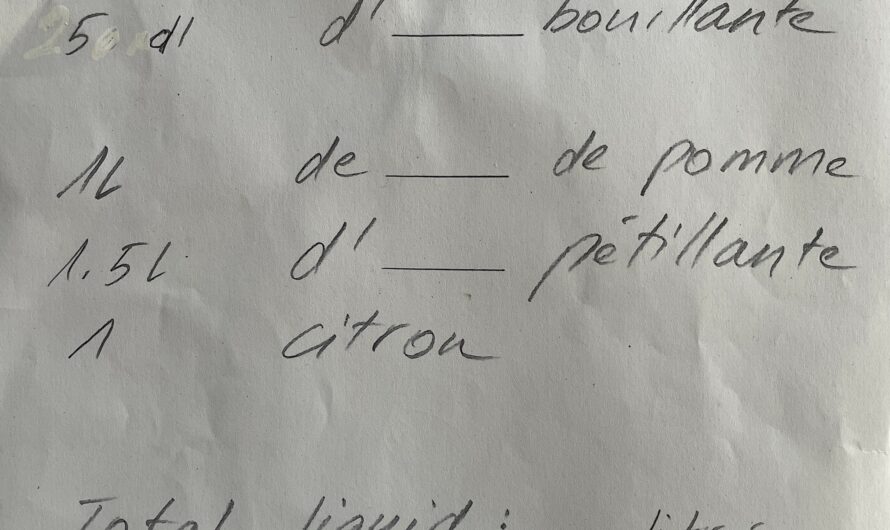 5 dl d' ____ bouillante
1L de ____ de pomme
1.5L d' ____ pétillante
1 citron
Total liquid :